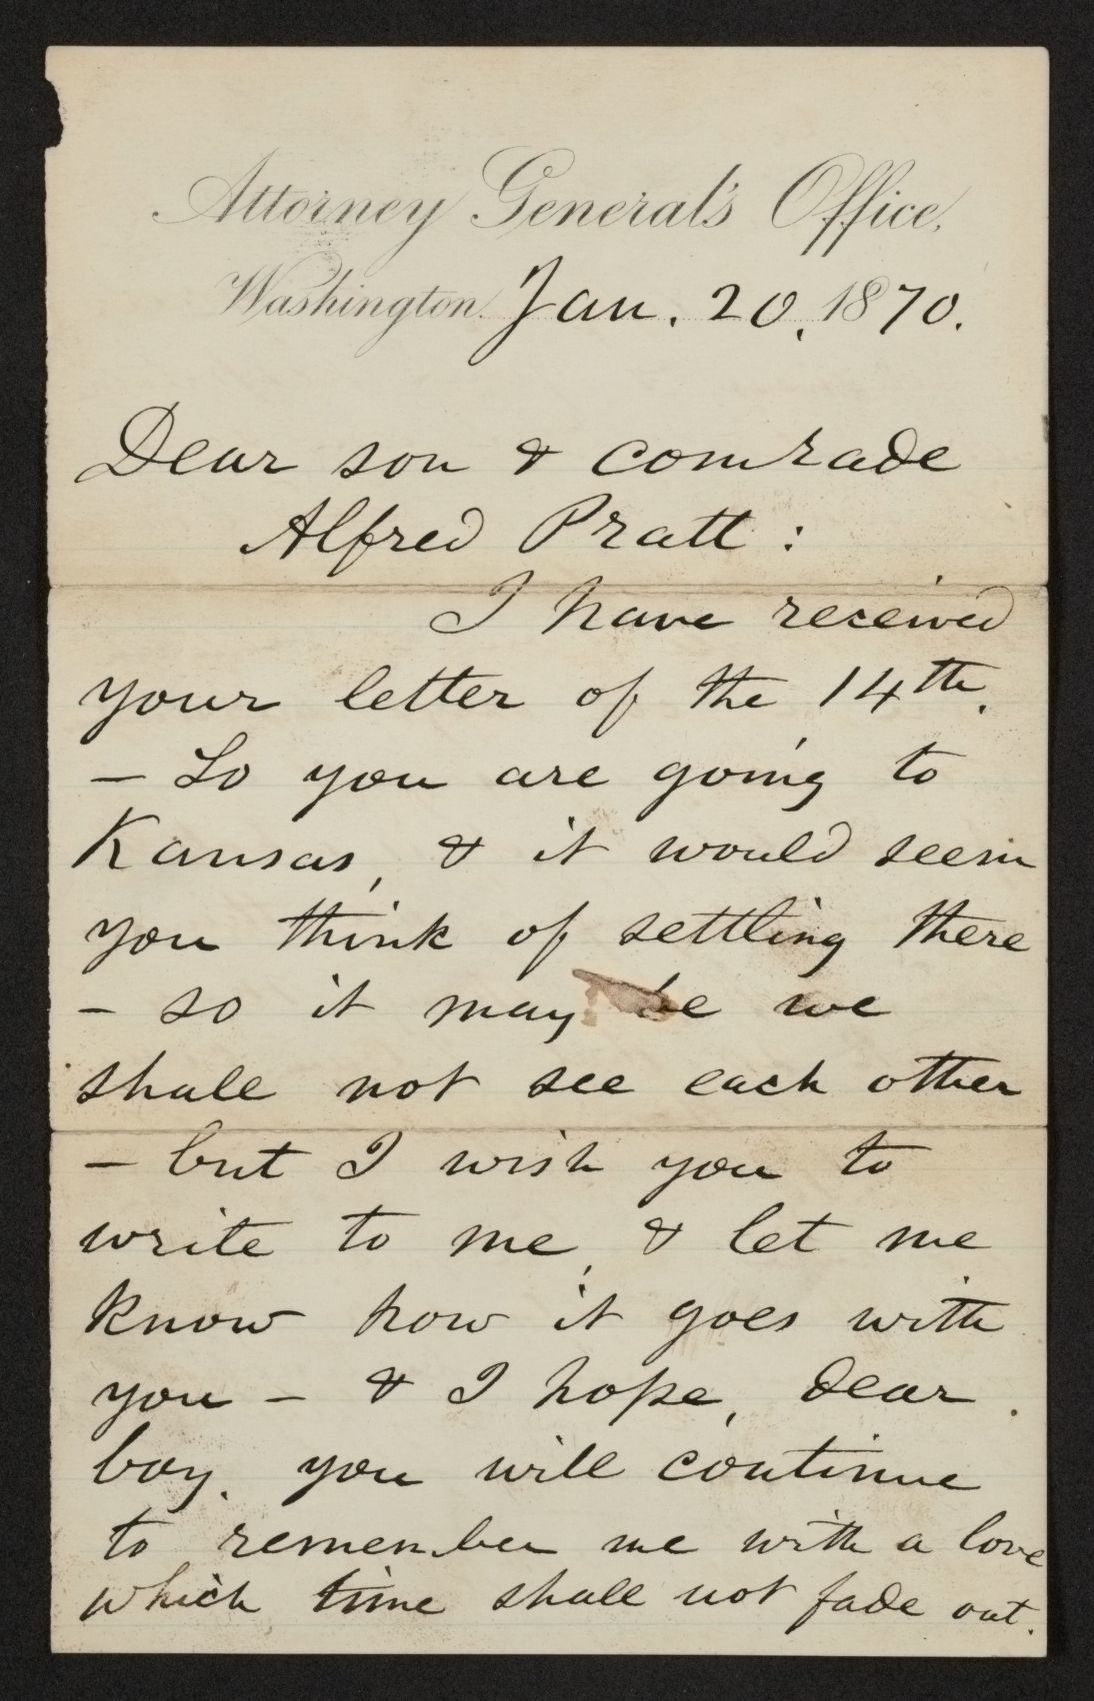 Attorney General's Office,
Washington. Jan. 20, 1870.
Dear son & comrade
Alfred Pratt:
I have received
your letter of the 14th.
— So you are going to
Kansas, & it would seem
you think of settling there
— so it may be we
shall not see each other
— but I wish you to
write to me, & let me
know how it goes with
you — & I hope, dear
boy, you will continue
to remember me with a love
which time shall not fade out.